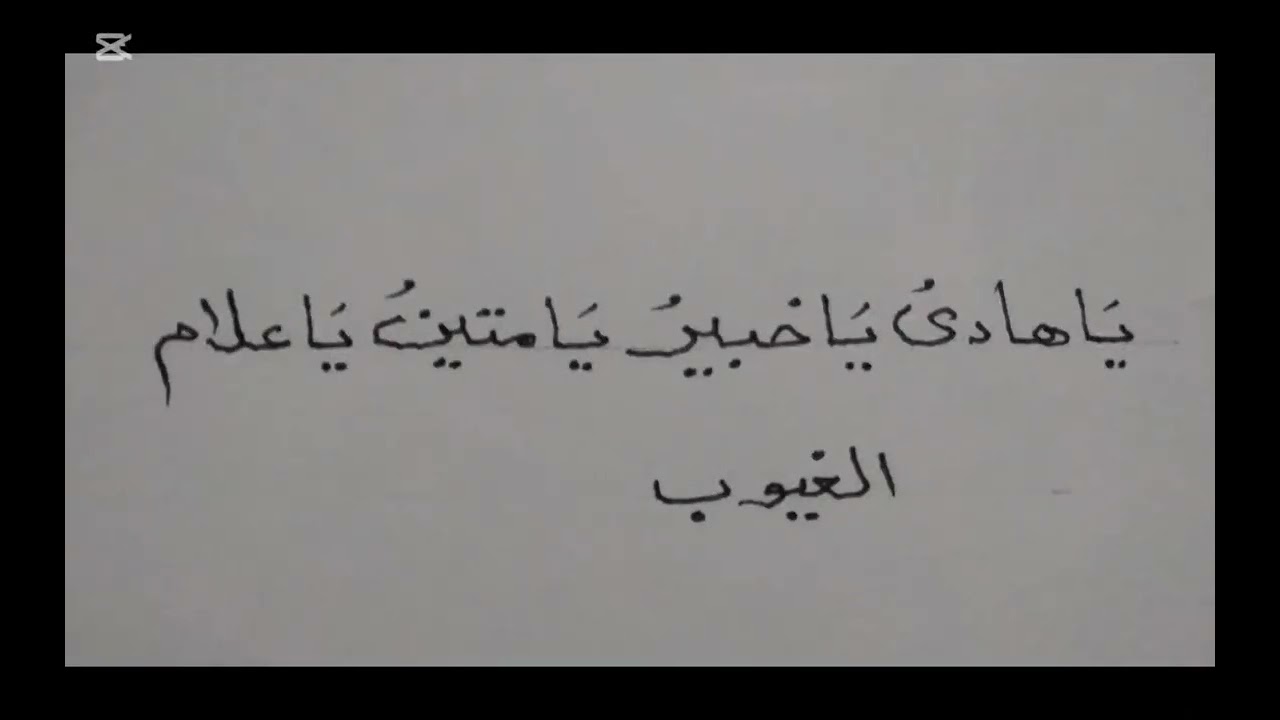 يَا هادىُ يَا خبيرُ يَا متينُ يَا علام
الغيوب